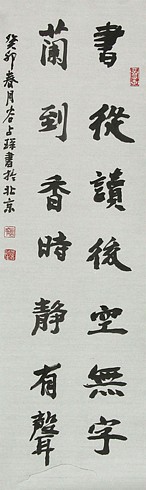 書從讀後空無字
蘭到香時靜有聲
癸卯春月谷占祥書於北京